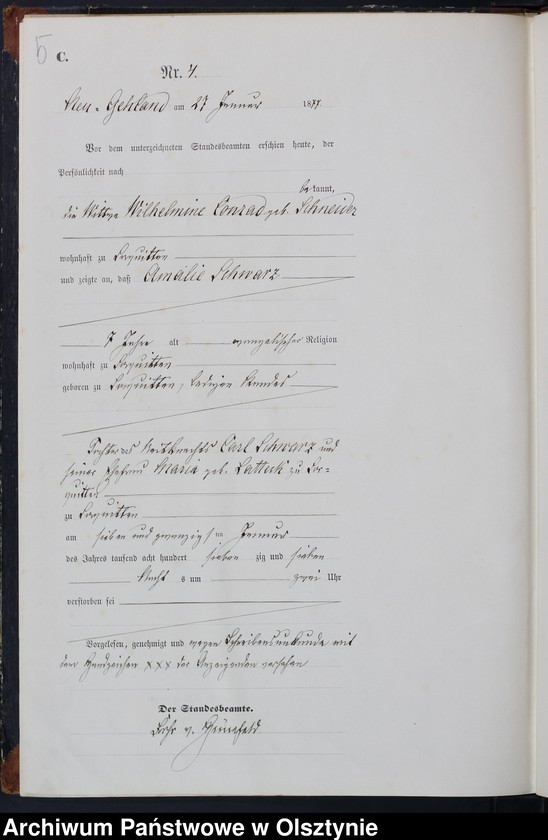 5
C.
Nr. 4.
Neu-Gehland am 27 Januar 1877.
Vor dem unterzeichneten Standesbeamten erschien heute, der
Persönlichkeit nach
bekannt,
die Wittwe Wilhelmine Conrad geb. Schneider
wohnhaft zu Sorquitten
und zeigte an, daß Amalie Schwarz
7 Jahre alt evangelischer Religion
wohnhaft zu Sorquitten
geboren zu Sorquitten, ledigen Standes
Tochter des Carl Schwarz und
seiner Ehefrau Maria geb. Latteck zu Sor-
quitten
zu Sorquitten
am sieben und zwanzigsten Januar
des Jahres tausend acht hundert sieben zig und sieben
Nachts um zwei Uhr
verstorben sei
Vorgelesen, genehmigt und wegen Schreibensunkunde mit
dem Handzeichen xxx der Anzeigenden versehen
Der Standesbeamte.
Archiwum Państwowe w Olsztynie